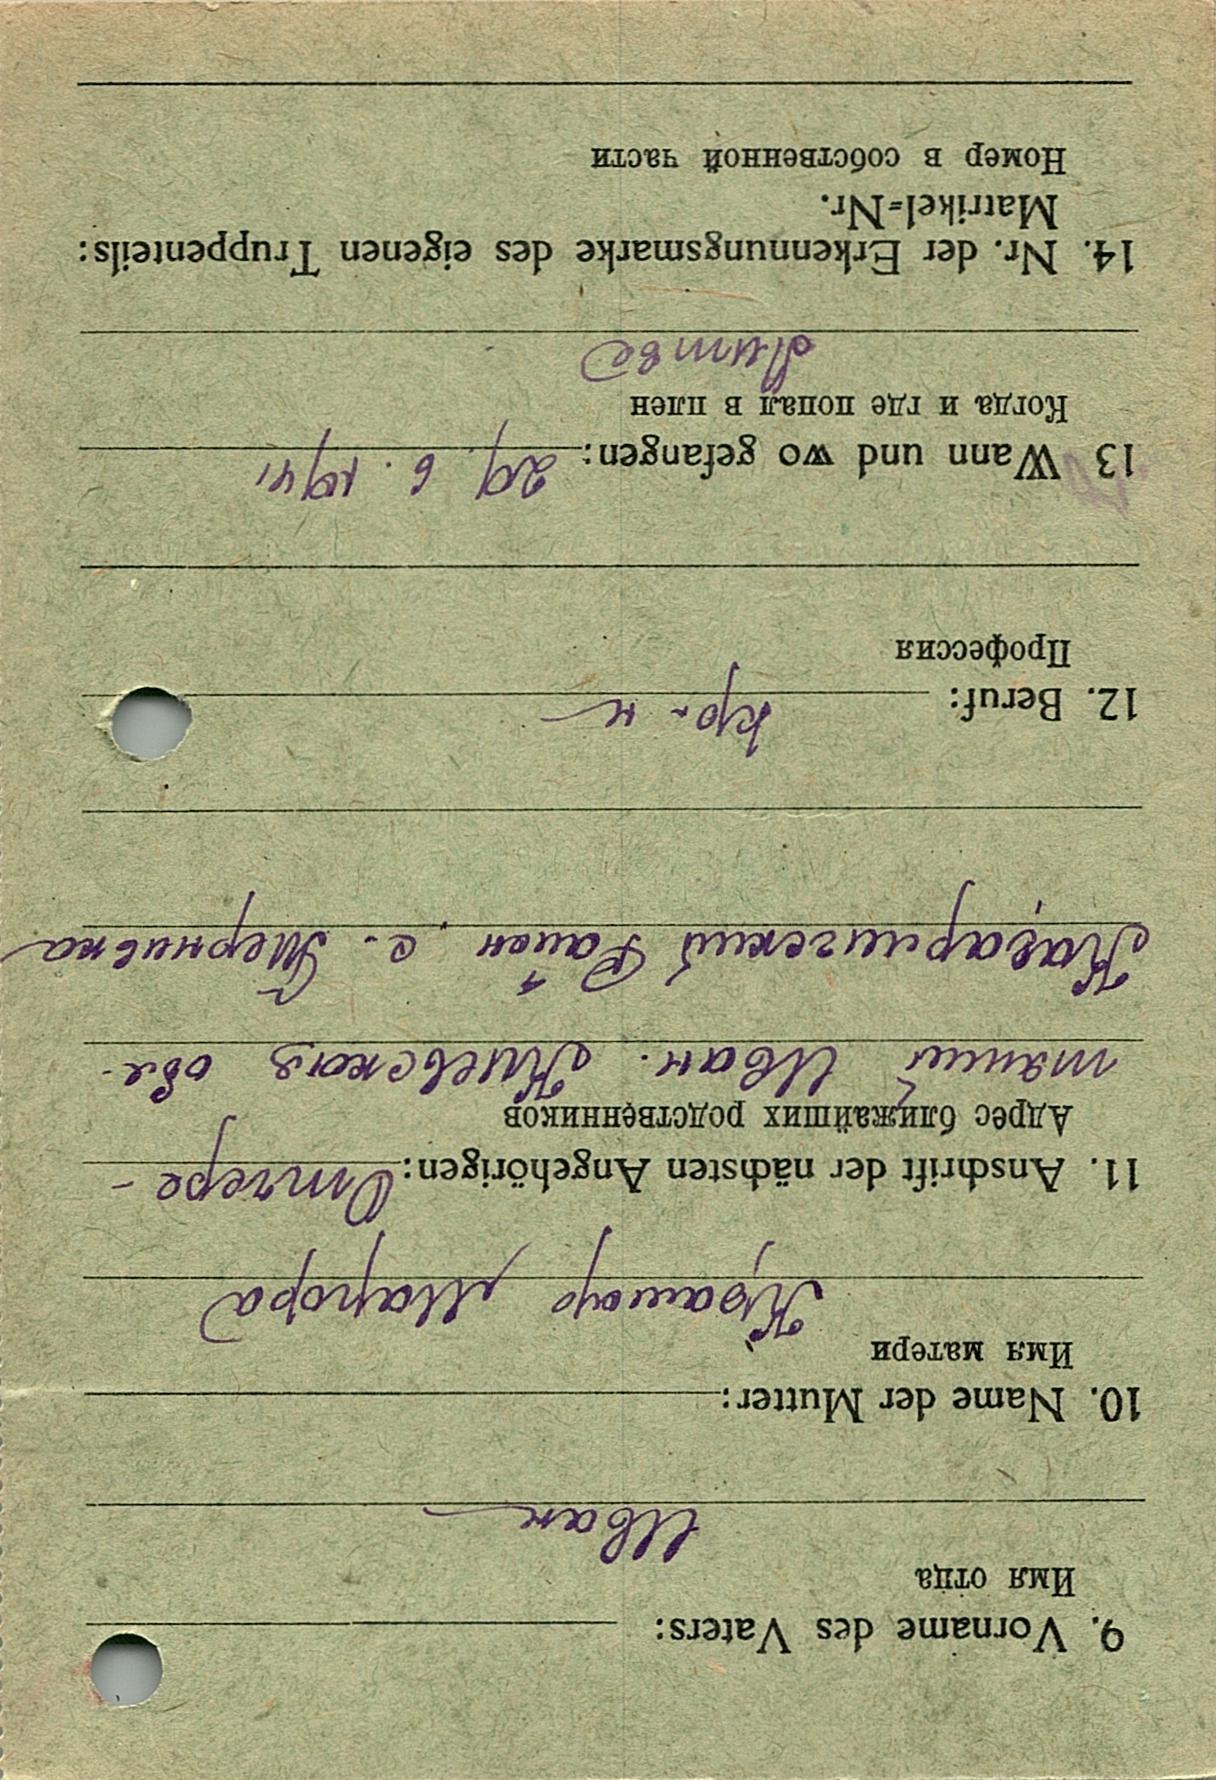 9. Vorname des Vaters:
Имя отца
Иван
10. Name der Mutter:
Имя матери
Мотора
11. Anschrift der nächsten Angehörigen:
Адрес ближайших родственников
Иван. Киевская обл.
Кагарлигский Район с. Тернивка
12. Beruf:
кр-н
Профессия
13 Wann und wo gefangen: 29. 6. 1941
Когда и где попал в плен
Литве
14. Nr. der Erkennungsmarke des eigenen Truppenteils:
Matrikel=Nr.
Номер в собственной части